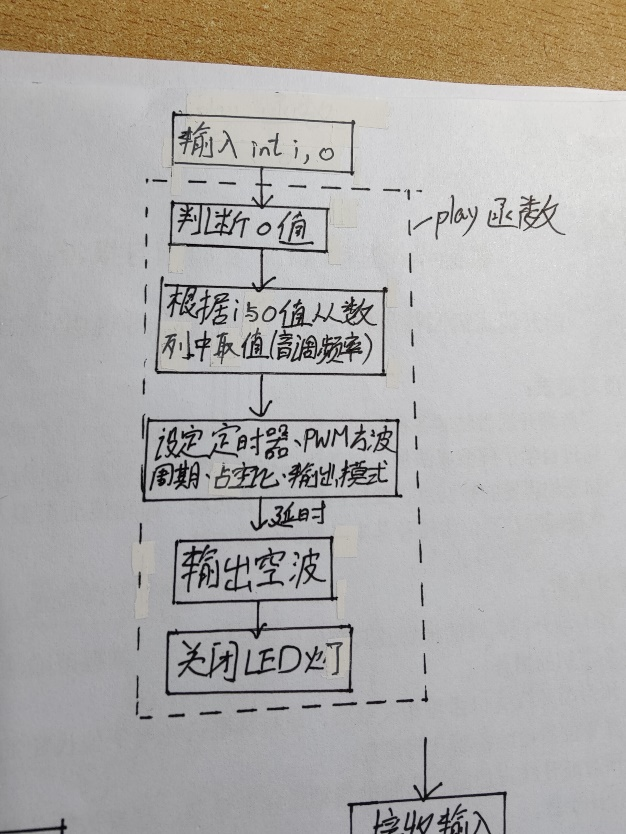 输入 int i, o
判断o值
play函数
根据i与o值从数
列中取值(音调频率)
设定定时器、PWM方波
周期、占空比、输出模式
延时
输出空波
关闭LED灯
接收输入